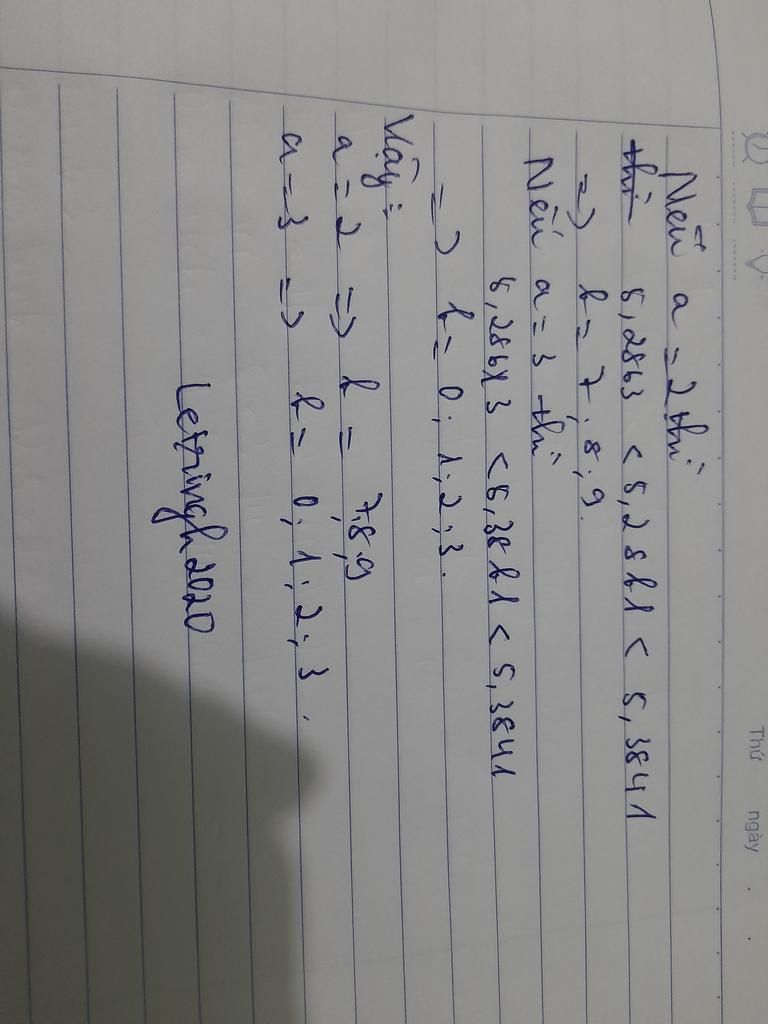 Thứ ngày
Nếu a = 2 thì
thì 5,2863 < 5,28b1 < 5,3841
=> b = 7; 8; 9.
Nếu a = 3 thì
5,2863 < 5,38b1 < 5,3841
=> b = 0; 1; 2; 3.
Vậy:
a = 2 => b = 7; 8; 9
a = 3 => b = 0; 1; 2; 3.